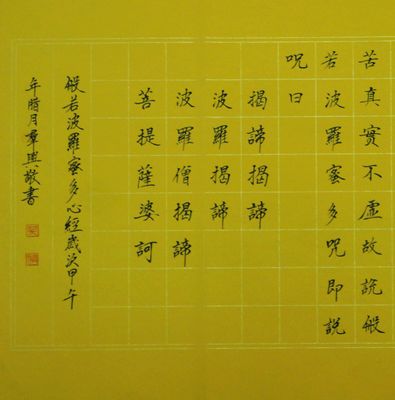 苦真實不虛故說般
若波羅蜜多呪即說
呪曰
揭諦揭諦
波羅揭諦
波羅僧揭諦
菩提薩婆訶
般若波羅蜜多心經歲次甲午
年腊月羣興敬書